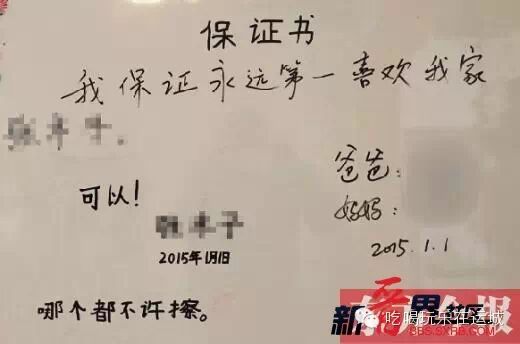 保证书
我保证永远第一喜欢我家
爸爸：
可以！
妈妈：
2015.1.1
2015年1月1日
哪个都不许擦。
吃喝玩乐在运城